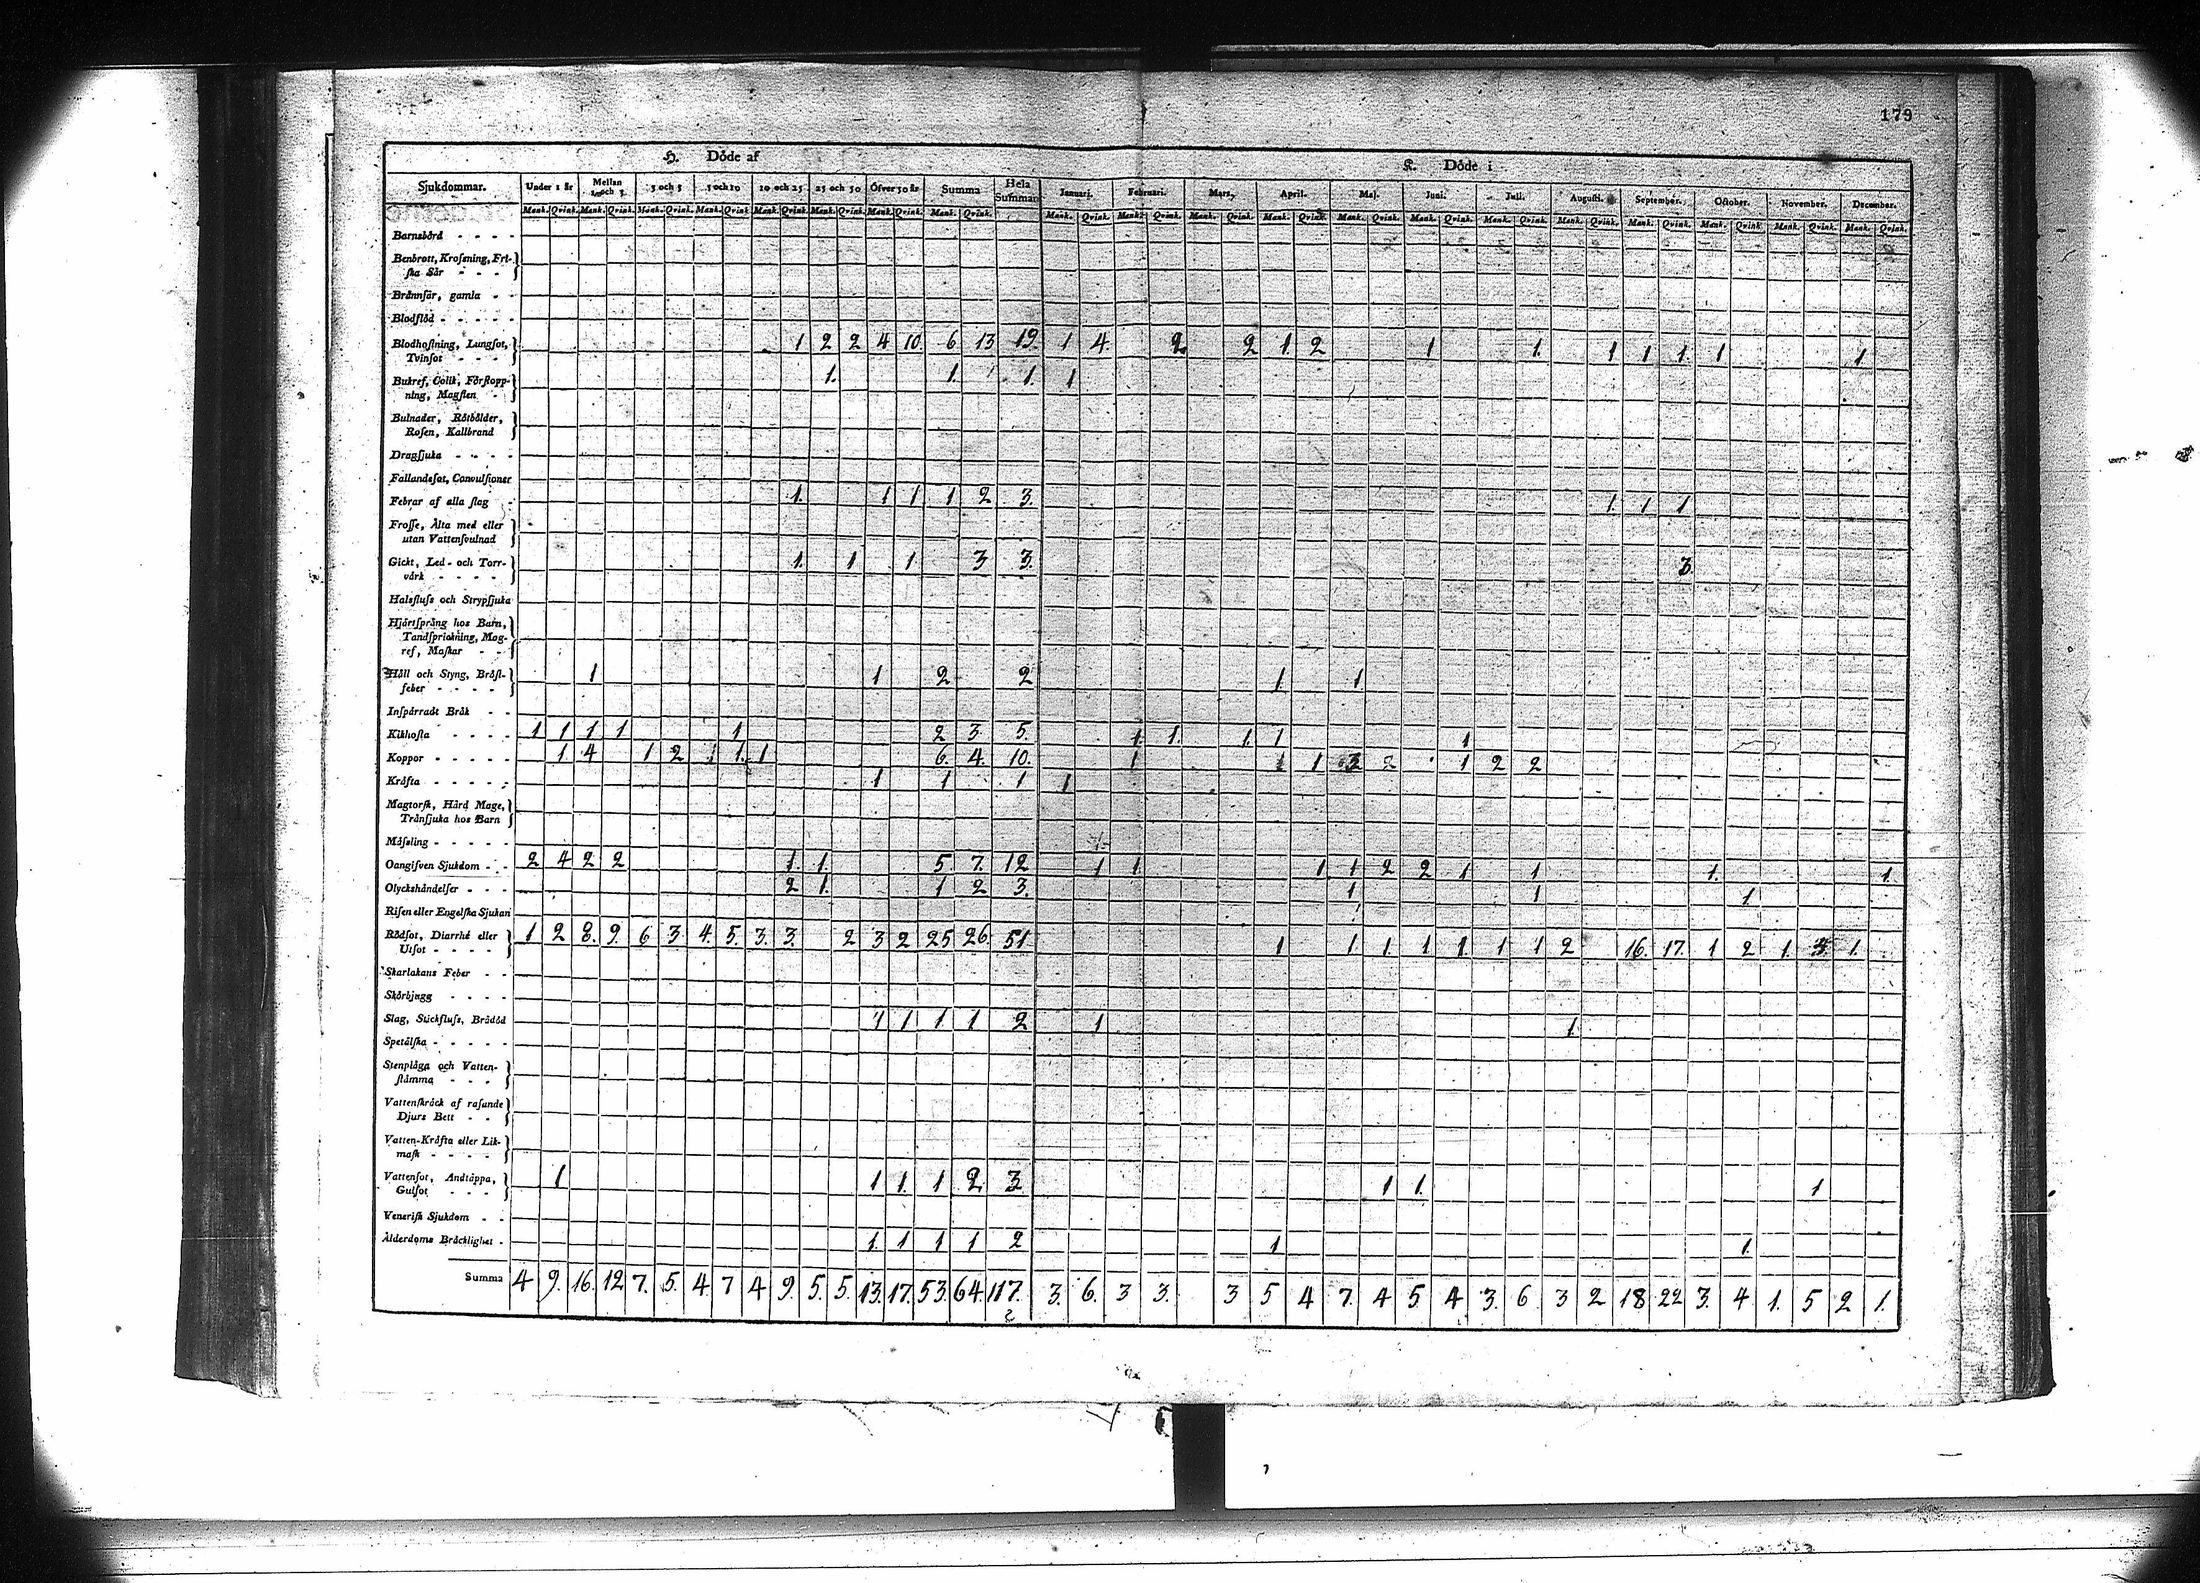 179
H. Döde af K. Döde i
Sjukdommar. Under 1 år Mellan 1 och 3. 3 och 5 5 och 10 10 och 25 25 och 50 Öfver 50 år Summa Hela Summan Januari. Februari. Mars. April. Maj. Juni. Juli. Augusti. September. October. November. December.
Mank. Qvink. Mank. Qvink. Mank. Qvink. Mank. Qvink. Mank. Qvink. Mank. Qvink. Mank. Qvink. Mank. Qvink. Mank. Qvink. Mank. Qvink. Mank. Qvink. Mank. Qvink. Mank. Qvink. Mank. Qvink. Mank. Qvink. Mank. Qvink. Mank. Qvink. Mank. Qvink. Mank. Qvink. Mank. Qvink.
Barnsbörd - - - -
Benbrott, Krossning, Fri-
ska Sår - - -
Brännsår, gamla - -
Blodflöd - - - - -
Blodhostning, Lungsot, 1 2 2 4 10. 6 13 19. 1 4. 2. 2 1. 2 1 1. 1 1 1. 1 1.
Tvinsot - - -
Bukref, Colik, Förstopp- 1. 1. 1. 1
ning, Magsten -
Bulnader, Rötbölder,
Rosen, Kallbrand
Dragsjuka - - - -
Fallandesot, Convulsioner
Febrar af alla slag - 1. 1 1 1 2 3. 1. 1 1
Frosse, Älta med eller
utan Vattensvulnad
Gickt, Led- och Torr- 1. 1 1 3 3. 3.
värk - - - -
Halsfluss och Strypsjuka
Hjärtsprång hos Barn,
Tandsprickning, Mag-
ref, Maskar - -
Håll och Styng, Bröst- 1 1 2 2 1. 1.
feber - - - -
Inspärradt Bråk - -
Kikhosta - - - - 1 1 1 1 1 2 3. 5. 1. 1. 1. 1 1
Koppor - - - - - 1 4 1 2 1 1. 1 6. 4. 10. 1 1 1 3 2 1 2 2
Kräfta - - - - - 1 1 1 1
Magtorsk, Hård Mage,
Trånsjuka hos Barn
Mässling - - - - -
Oangifven Sjukdom - - 2 4 2 2 1. 1. 5 7. 12 1 1. 1. 1 2 2 1 1 1. 1.
Olyckshändelser - - - 2 1. 1 2 3. 1 1 1.
Risen eller Engelska Sjukan
Rödsot, Diarrhé eller 1 2 8. 9. 6 3. 4. 5. 3. 3. 2 3 2 25 26. 51. 1 1 1. 1 1. 1 1 2 16. 17. 1 2 1. 3. 1.
Utsot - - - -
Skarlakans Feber - -
Skörbjugg - - - -
Slag, Stickfluss, Brådöd 1 1 1 1 2 1 1.
Spetälska - - - - -
Stenplåga och Vatten-
stämma - - -
Vattenskräck af rasande
Djurs Bett - -
Vatten-Kräfta eller Lik-
mask - - - -
Vattensot, Andtäppa, 1 1 1. 1 2. 3 1 1. 1
Gulsot - - -
Venerisk Sjukdom - -
Ålderdoms Bräcklighet - 1. 1 1 1 2 1 1.
Summa 4 9. 16. 12 7. 5. 4 7 4 9. 5. 5. 13. 17. 53. 64. 117. 3. 6. 3 3. 3 5 4 7. 4 5. 4 3. 6 3 2 18 22 3. 4 1. 5 2 1.